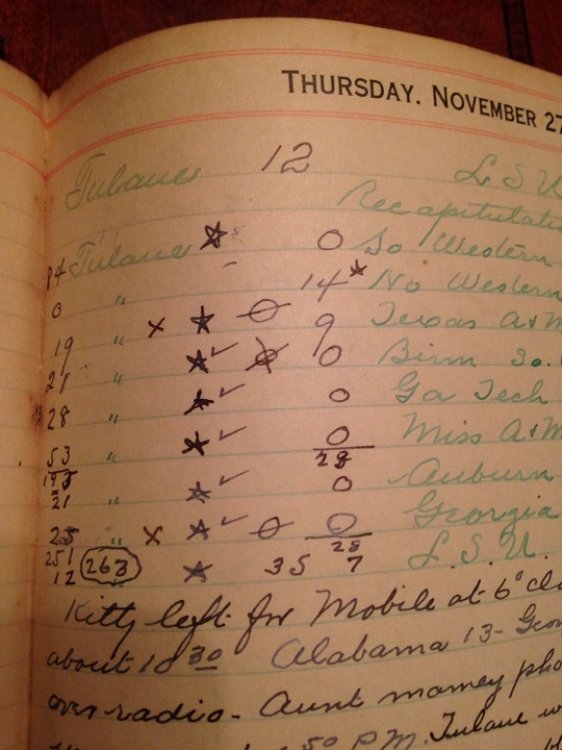 THURSDAY, NOVEMBER 27
Tulane 12 L S U
Recapitulatio
84 Tulane ★ 0 So Western
0 " 14 * No Western
19 " x ★ 0 9 Texas A+M
21 " ★ ✓ 0 Birm So.
28 " ★ ✓ 0 Ga Tech
53 " ★ ✓ 0 Miss A+M
28
21 " ★ ✓ 0 Auburn
25 " x ★ ✓ 0 0 Georgia
28
251
12 263 ★ 35 7 L. S. U.
Kitty left for Mobile at 6 o'clo
about 10 30 Alabama 13 - Geor
over radio - Aunt mamey pho
50 P.M. Tulane w